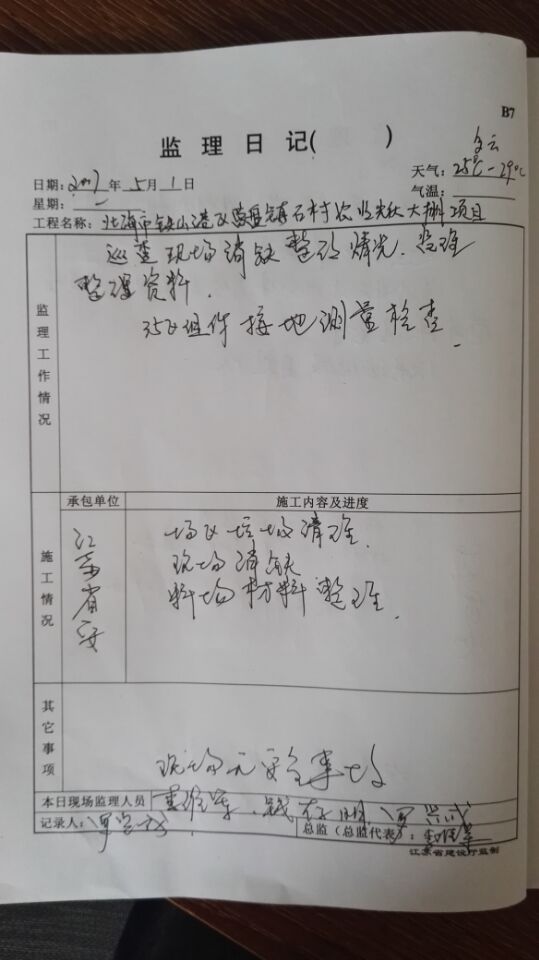 B7
监 理 日 记( )
多云
天气：25℃-29℃
日期：年 5月 1日
气温：
星期：一
工程名称：北海市铁山港区营盘镇石村农业光伏大棚项目
监理工作情况
巡查现场消缺整改情况.监理
整理资料.
35区组件接地测量检查.
承包单位
施工内容及进度
施工情况
江苏省安
场区垃圾清理.
现场消缺
料场材料整理.
其它事项
现场无安全事故
本日现场监理人员
记录人：
总监（总监代表）：
江苏省建设厅监制